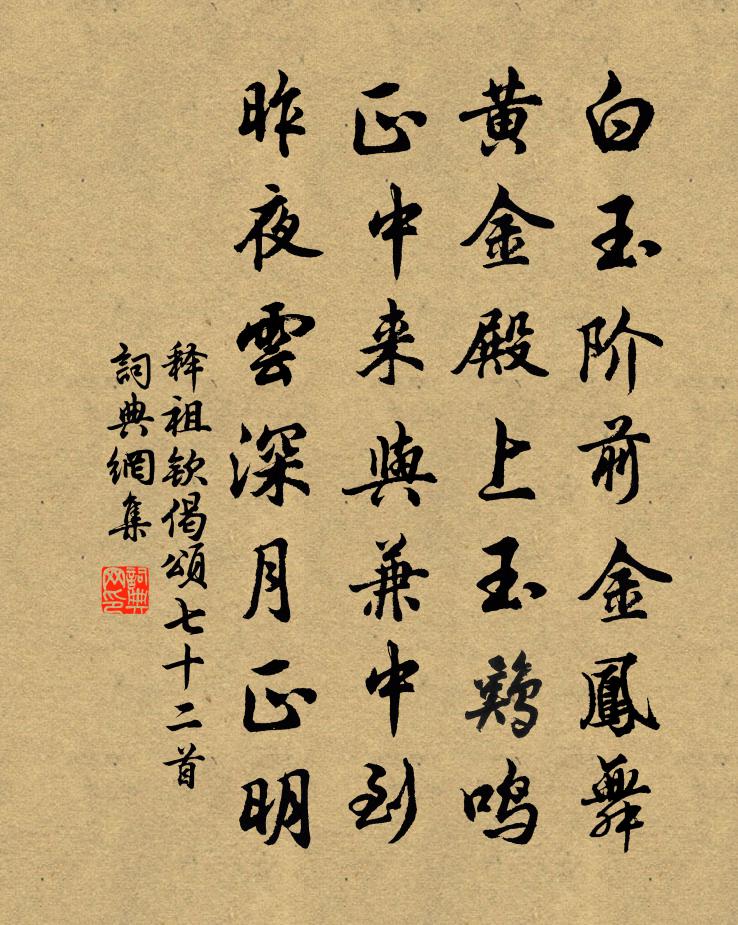 白玉阶前金鳳舞
黄金殿上玉鷄鸣
正中来與兼中到
昨夜雲深月正明
释祖钦偈頌七十二首
詞典網集
詞典网印